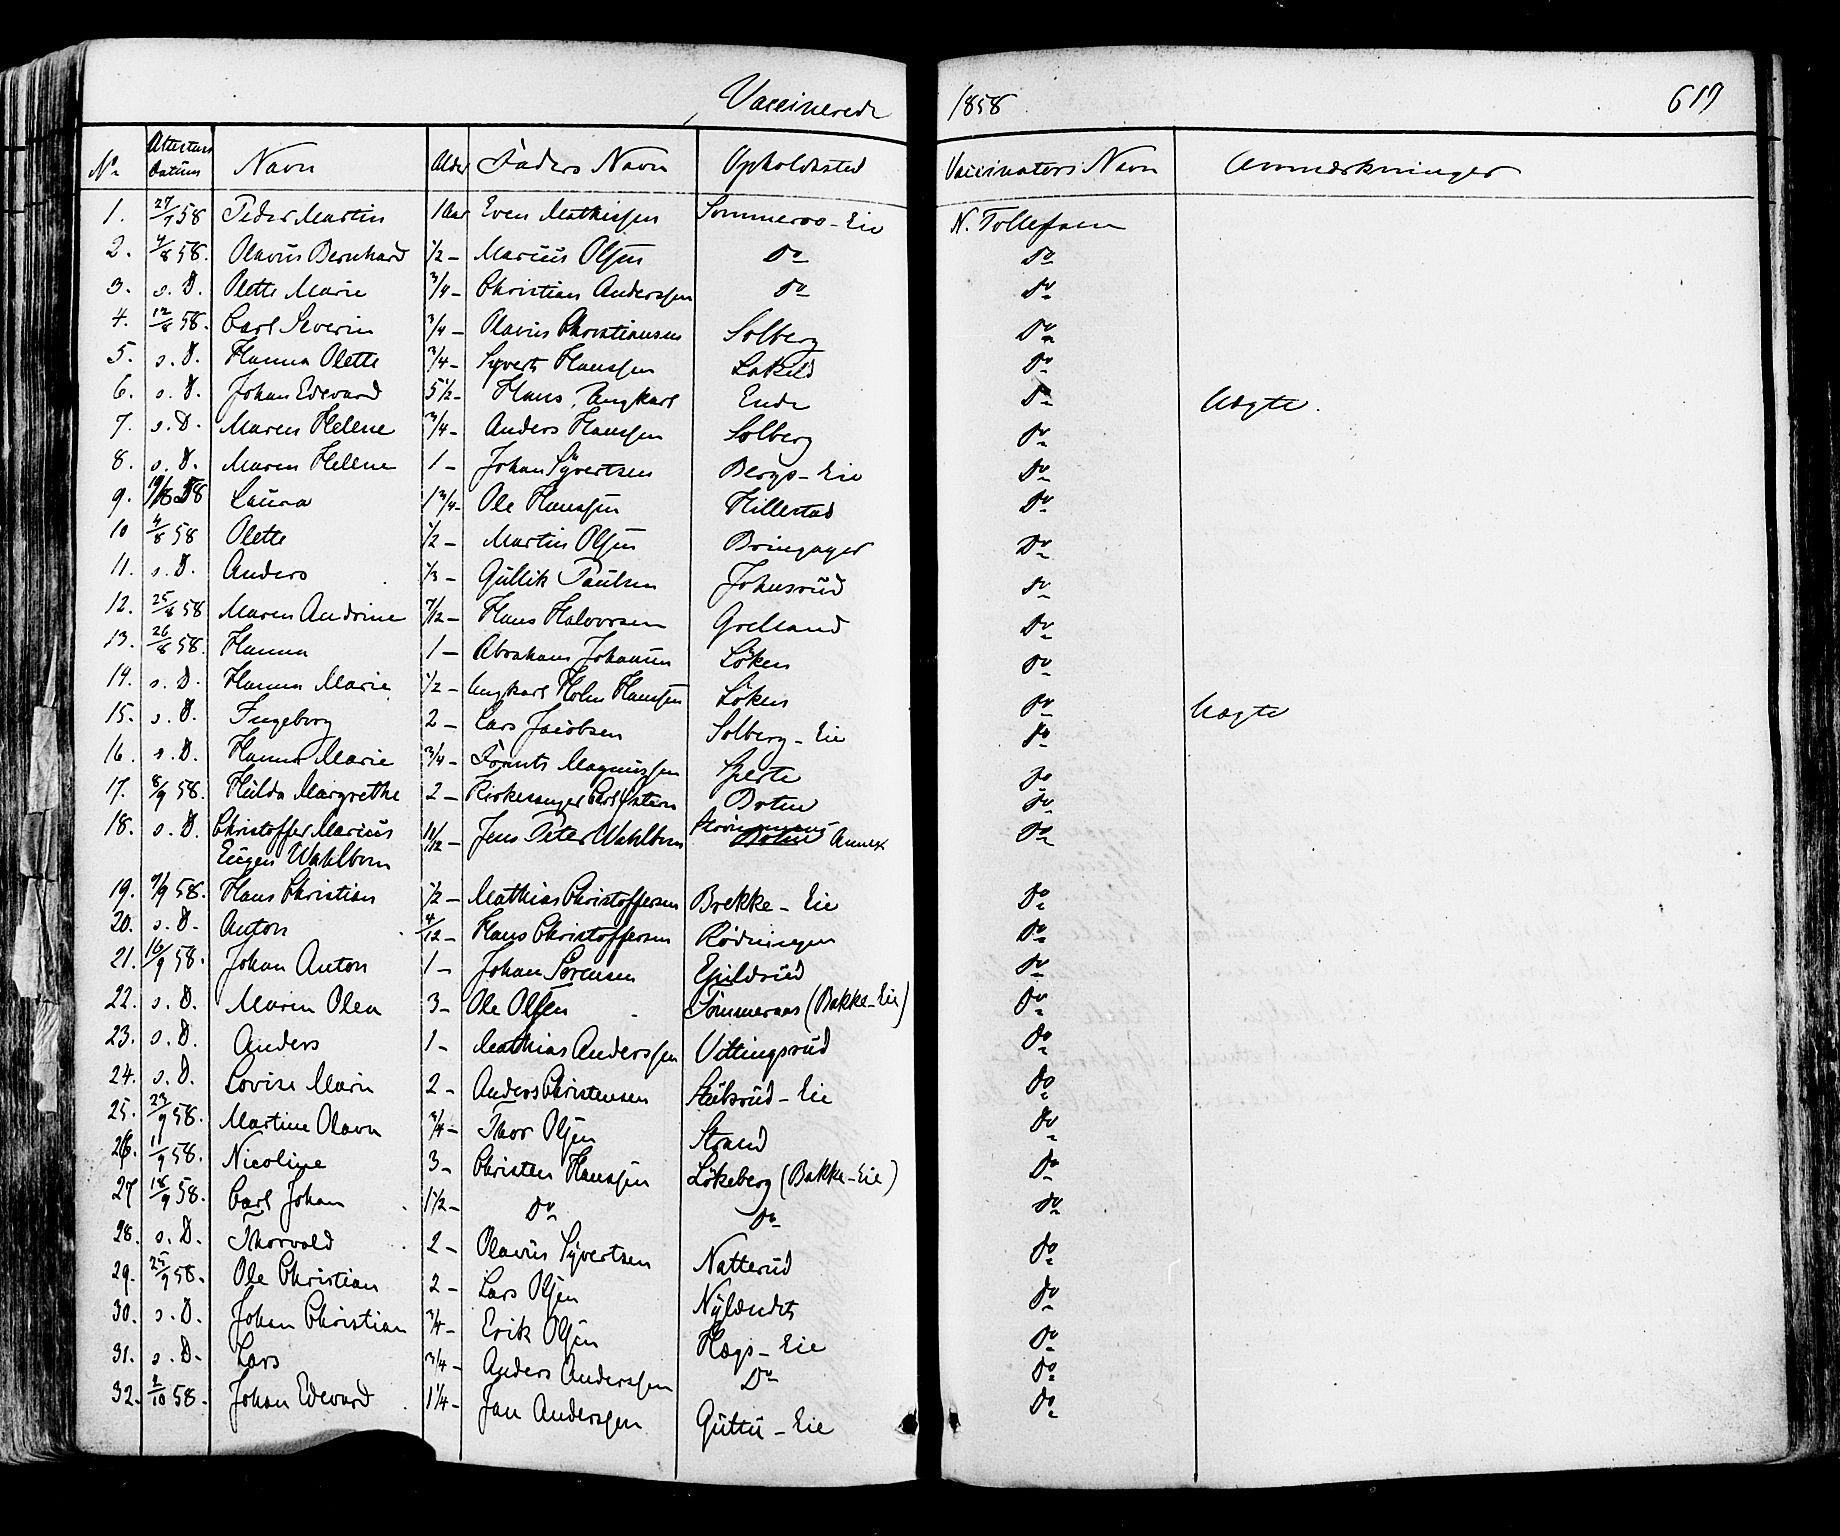 Vaccinerede 1858 617
No Attestens Datum Navn Alder Faders Navn Opholdssted Vaccinators Navn Anmærkninger
1. 27/7 58 Peder Martin 1 Aar Even Mathissen Sommeroo-Eie N. Tollefsen
2. 4/8 58. Olavus Bernhard 1/2 - Marius Olsen Do Do
3. s. D. Olette Marie 3/4 - Christian Anderssen Do Do
4. 12/8 58. Carl Severin 3/4 - Olavus Christiansen Solberg Do
5. s. D. Hanna Olette 3/4 - Syvert Hanssen Do
6. s. D. Johan Edevard 5 1/2 - Hans, Ungkarl Ende Do Uægte.
7. s. D. Maren Helene 3/4 - Anders Hanssen Solberg Do
8. s. D. Maren Helene 1 - Johan Syvertsen Bergs-Eie Do
9. 58 Laura 1 3/4 - Ole Hanssen Hillestad Do
10 4/8 58 Olette 1/2 - Martin Olsen Bringager Do
11. s. D. Anders 1/3 - Gullik Paulsen Johnsrud Do
12. 25/8 58 Maren Andrine 7/12 - Hans Halvorsen Grelland Do
13. 26/8 58. Hanna 1 - Abraham Johansen Löken Do
14. s. D. Hanna Marie 1/2 - Ungkarl Holm Hanssen Löken Do Uægte
15. s. D. Ingeborg 2 - Lars Jacobsen Solberg-Eie Do
16. s. D. Hanna Marie 3/4 - Magnussen Do
17. 8/9 58. Hulda Margrethe 2 - Kirkesanger Carl Botne Do
18. s. D. Christoffer Marius 11/12 - Jens Peter Wahlborn Annex Do
Eugen Wahlborn
19. 9/9 58. Hans Christian 1/2 - Mathias Christoffersen Brekke-Eie Do
20. s. D. Anton 4/12 - Hans Christoffersen Rødningen Do
21. 16/9 58. Johan Anton 1 - Johan Sørensen Do
22. s. D. Maren Olea 3 - Ole Olsen Sommeraas (Bakke-Eie) Do
23. s. D. Anders 1 - Mathias Anderssen Vittingsrud Do
24. s. D. Lovise Marie 2 - Anders Christensen Stubsrud-Eie Do
25. 23/9 58. Martine Olava 3/4 - Thor Olsen Strand Do
26. 11/9 58. Nicoline 3 - Christen Hanssen Lökeberg (Bakke-Eie) Do
27 18/9 58. Carl Johan 1 1/2 - Do Do Do
28. s. D. Thorvald 2 - Olavus Syvertsen Natterud Do
29. 25/9 58. Ole Christian 2 - Lars Olsen Nylændet Do
30. s. D. Johan Christian 3/4 - Erik Olsen Hægs-Eie Do
31. s. D. Lars 3/4 - Anders Anderssen Do Do
32. 2/10 58. Johan Edevard 1 1/4 - Jan Anderssen Guttu-Eie Do